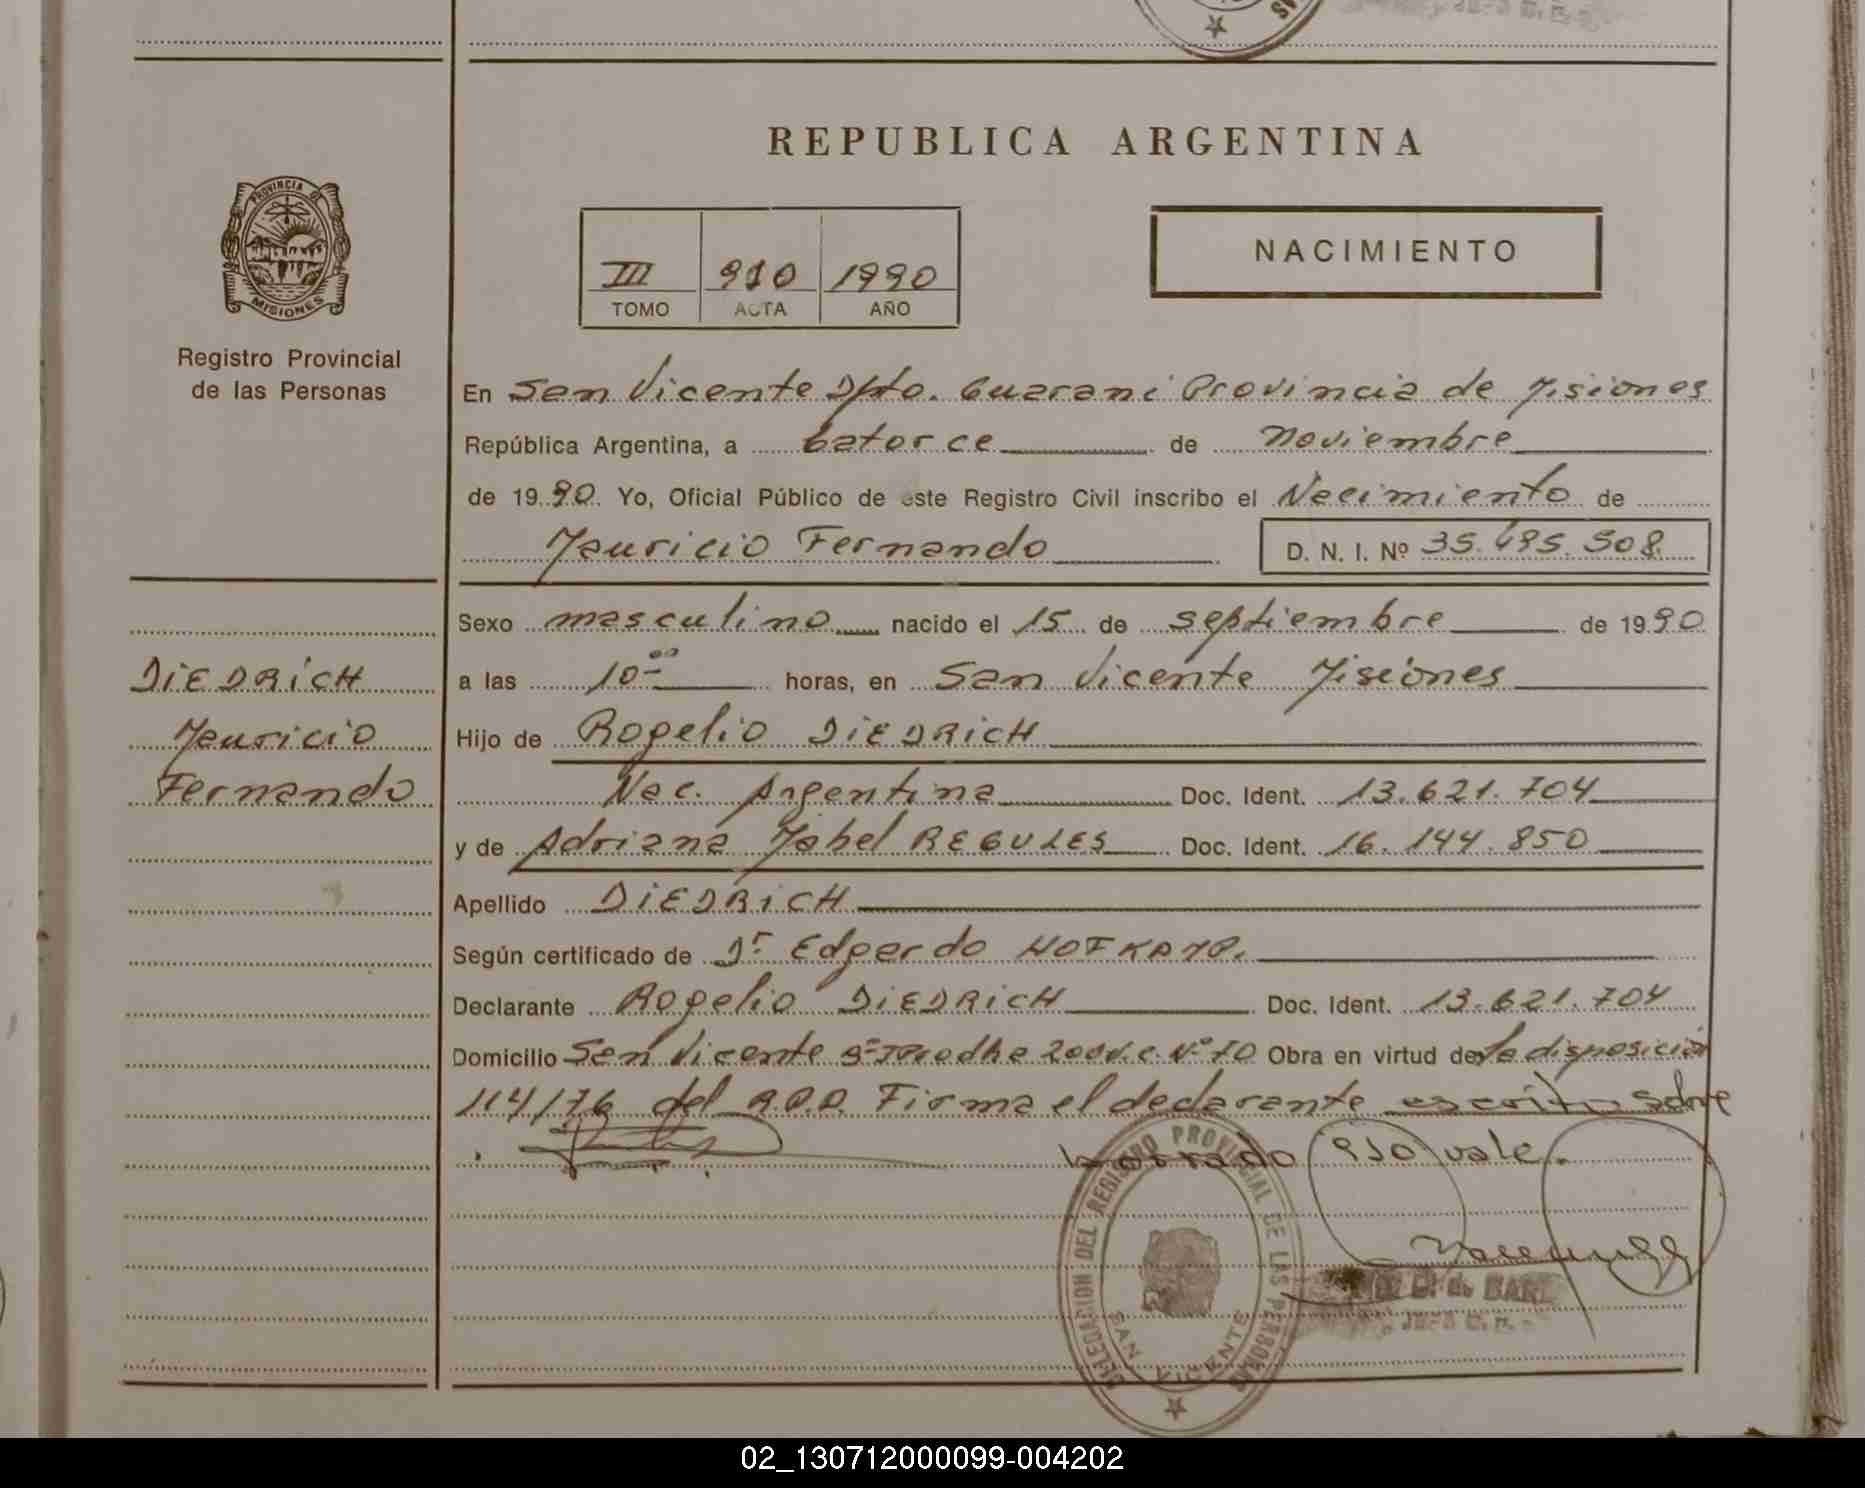 REPUBLICA ARGENTINA
PROVINCIA DE
MISIONES
Registro Provincial
de las Personas
III 910 1990
TOMO ACTA AÑO
NACIMIENTO
En San Vicente Dpto. Guarani Provincia de Misiones
República Argentina, a catorce de Noviembre
de 1990. Yo, Oficial Público de este Registro Civil inscribo el Nacimiento de
Mauricio Fernando D. N. I. Nº 35.495.508
Sexo masculino nacido el 15 de septiembre de 1990
DIEDRICH
Mauricio
Fernando
a las 10 00 horas, en San Vicente Misiones
Hijo de Rogelio DIEDRICH
Nac. Argentina Doc. Ident. 13.621.704
y de Adriana Mabel REGULES Doc. Ident. 16.144.850
Apellido DIEDRICH
Según certificado de Dr Edgardo HOFKAMP.
Declarante Rogelio DIEDRICH Doc. Ident. 13.621.704
Domicilio San Vicente Nº 70 Obra en virtud de la disposición
114/76 del R.P.P. Firma el declarante escrito sobre
borrado 910 vale.
DELEGACION DEL REGISTRO PROVINCIAL DE LAS PERSONAS
SAN VICENTE
02_130712000099-004202